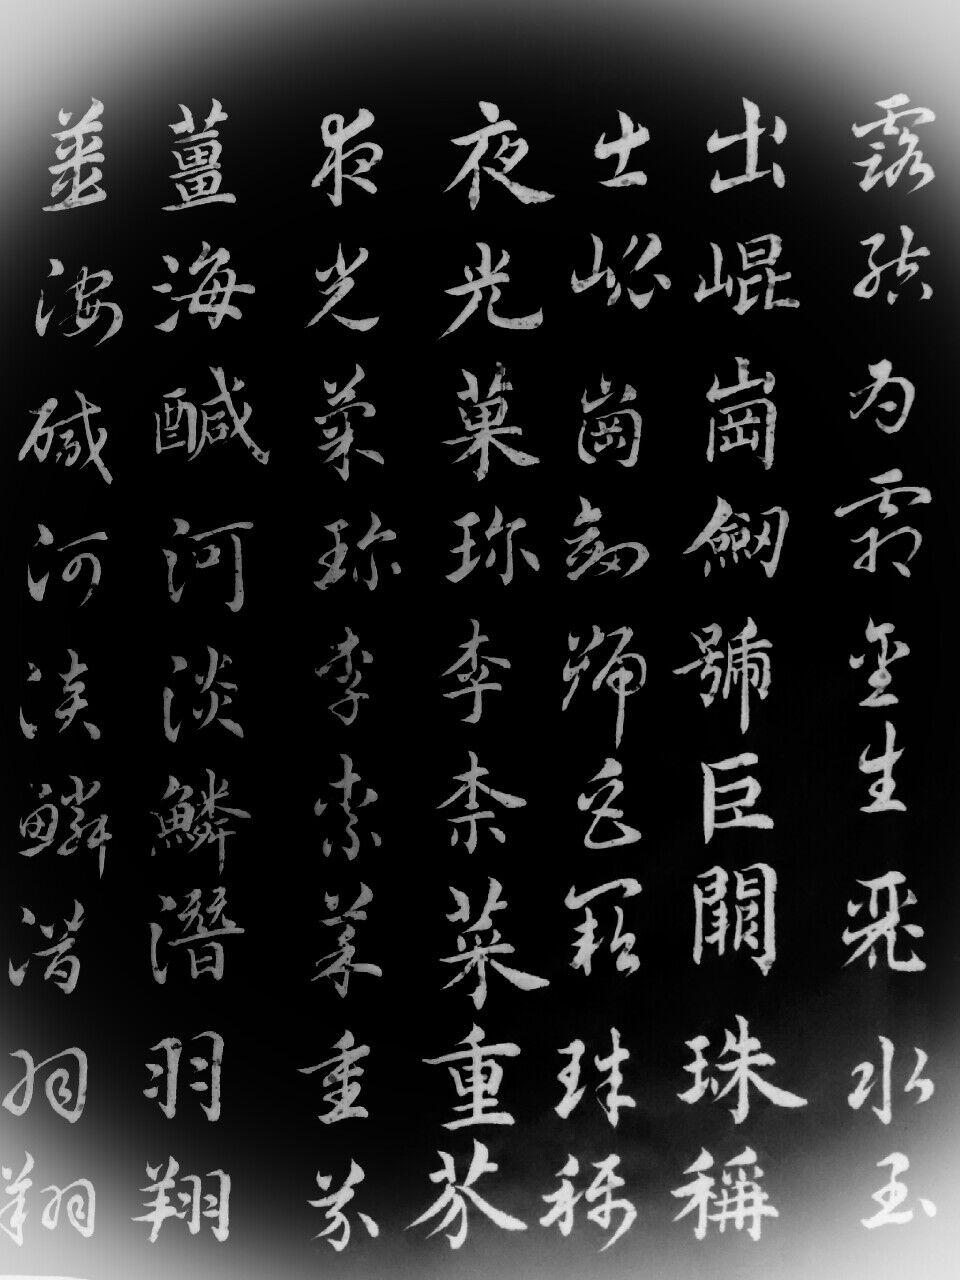 露結為霜金生麗水玉
出崐崗劒號巨闕珠稱
出崐崗劒號巨闕珠稱
夜光菓珍李柰菜重芥
夜光菓珍李柰菜重芥
薑海醎河淡鱗潛羽翔
薑海醎河淡鱗潛羽翔